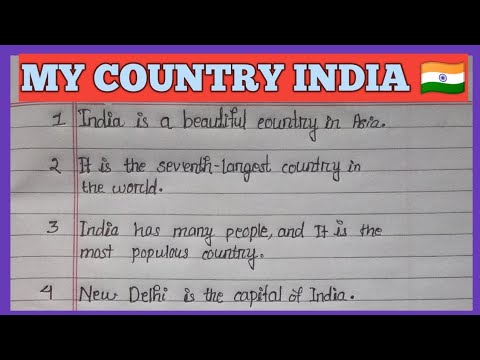 MY COUNTRY INDIA 🇮🇳
1 India is a beautiful country in Asia.
2 It is the seventh-largest country in
the world.
3 India has many people, and It is the
most populous country.
4 New Delhi is the capital of India.